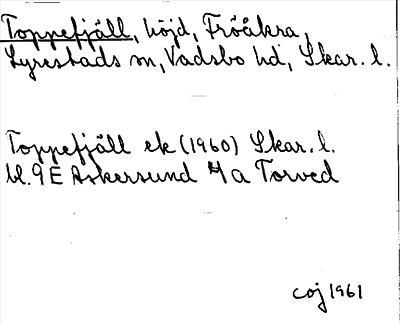 Toppefjäll, höjd, Fröåkra,
Lyrestads sn, Vadsbo hd, Skar. l.
Toppefjäll ek (1960) Skar. l.
bl. 9E Askersund 4/a Torved
coj 1961